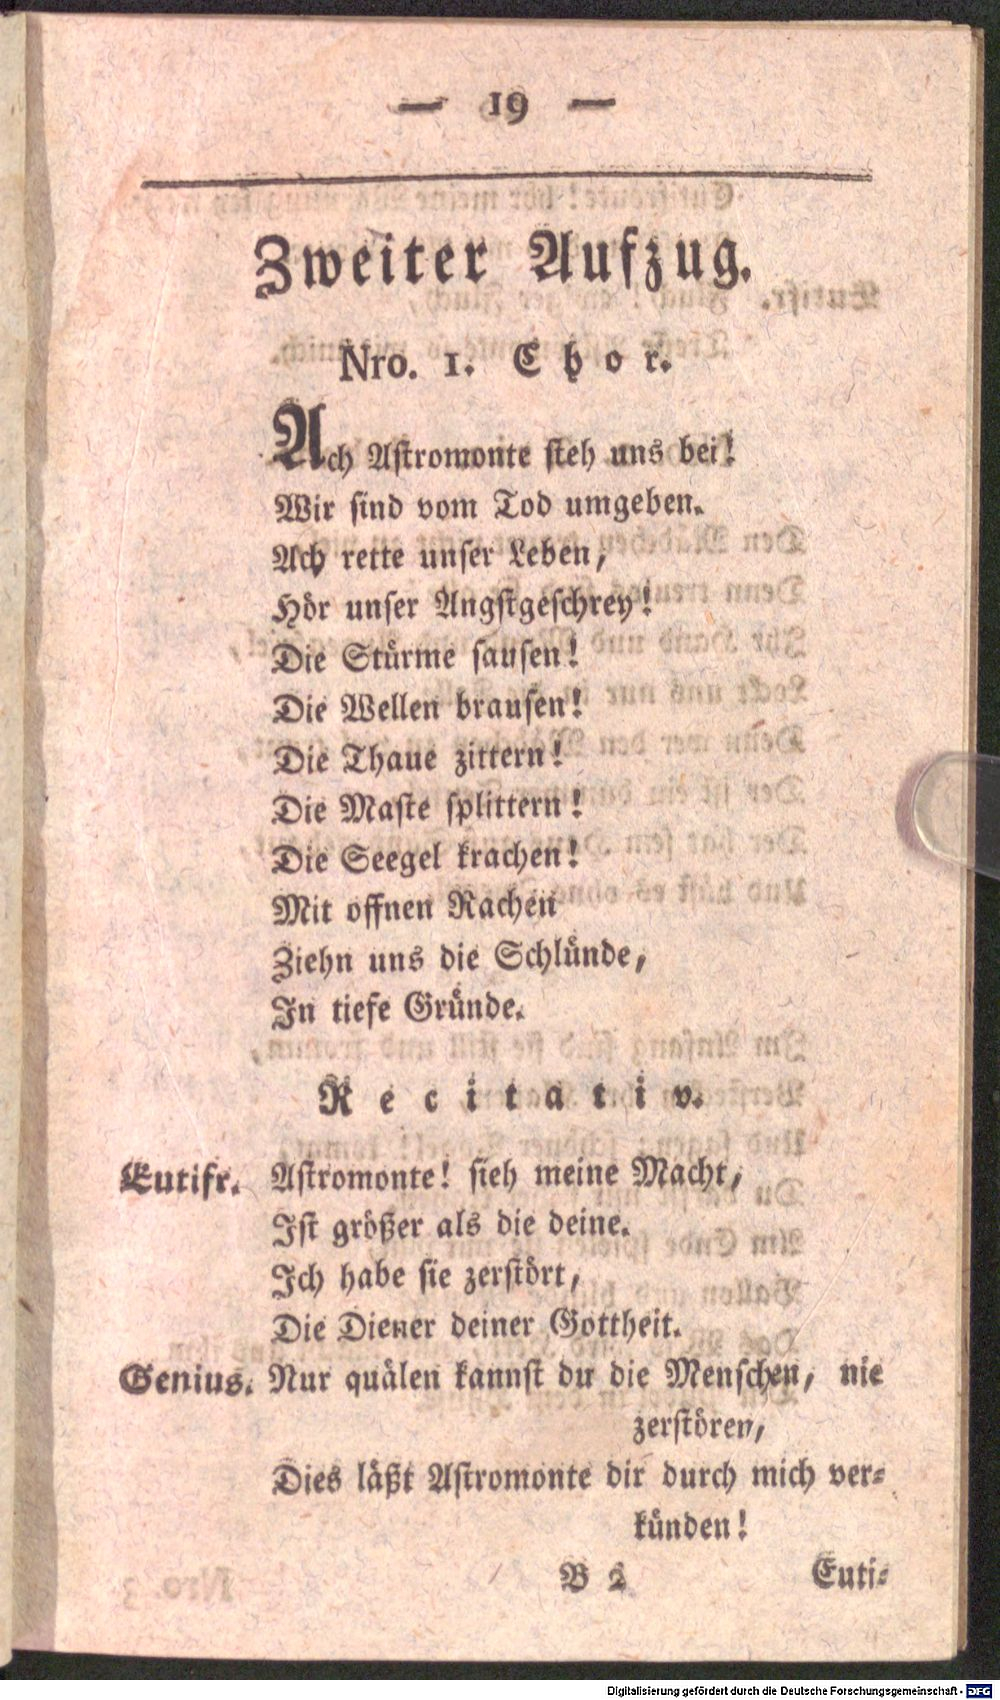 — 19 —
Zweiter Aufzug.
Nro. 1. Chor.
Ach Astromonte steh uns bei!
Wir sind vom Tod umgeben.
Ach rette unser Leben,
Hör unser Angstgeschrey!
Die Stürme sausen!
Die Wellen brausen!
Die Thaue zittern!
Die Maste splittern!
Die Seegel krachen!
Mit offnen Rachen
Ziehn uns die Schlünde,
In tiefe Gründe.
Recitativ.
Eutifr. Astromonte! sieh meine Macht,
Ist größer als die deine.
Ich habe sie zerstört,
Die Diener deiner Gottheit.
Genius. Nur quälen kannst du die Menschen, nie
zerstören,
Dies läßt Astromonte dir durch mich ver-
künden!
B 2 Euti-
Digitalisierung gefördert durch die Deutsche Forschungsgemeinschaft - DFG